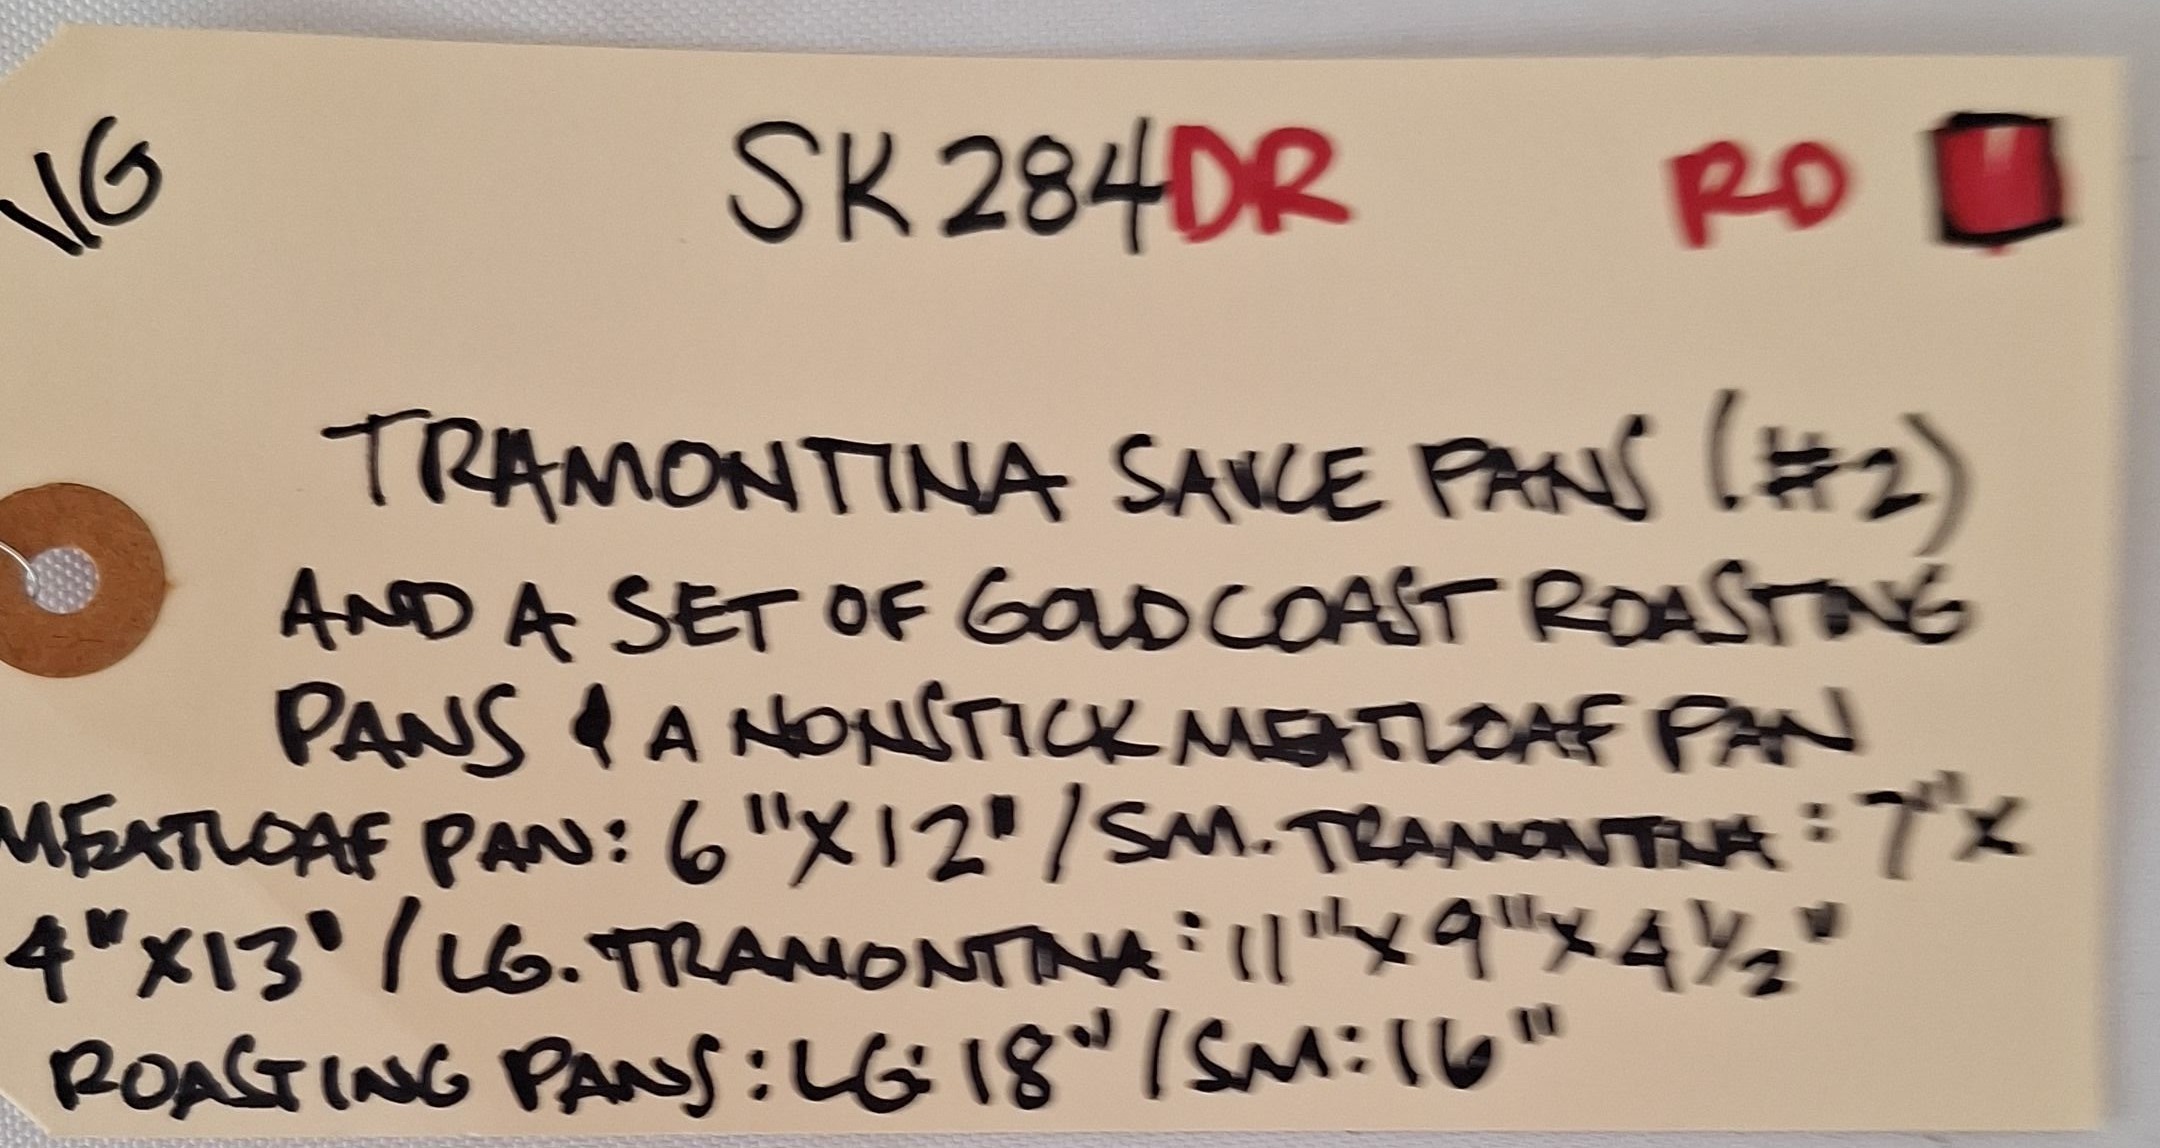 VG SK284DR RD
TRAMONTINA SAUCE PANS (#2)
AND A SET OF GOLD COAST ROASTING
PANS & A NONSTICK MEATLOAF PAN
MEATLOAF PAN: 6"X12" / SM. TRAMONTINA: 7"X
4"X13" / LG. TRAMONTINA: 11"X9"X4½"
ROASTING PANS: LG: 18" / SM: 16"